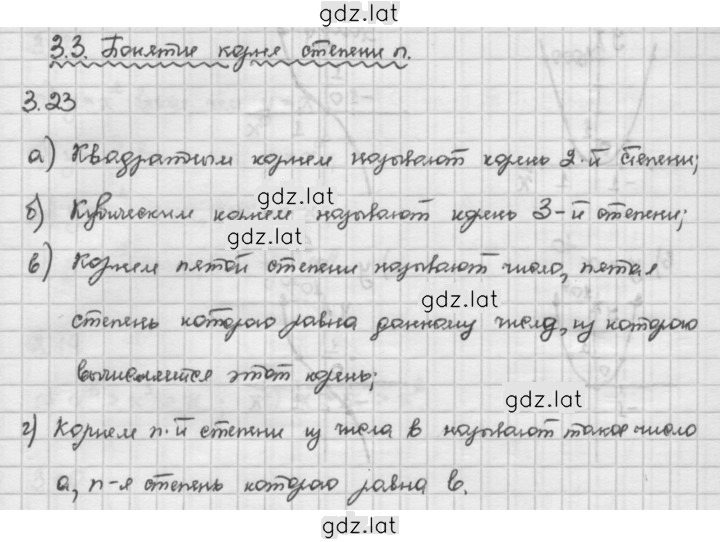 gdz.lat
3.3. Понятие корня степени n.
3.23
а) Квадратным корнем называют корень 2-й степени;
gdz.lat
б) Кубическим корнем называют корень 3-й степени;
gdz.lat
в) Корнем пятой степени называют число, пятая
gdz.lat
степень которого равна данному числу, из которого
вычисляется этот корень;
gdz.lat
г) Корнем n-й степени из числа b называют такое число
a, n-я степень которого равна b.
gdz.lat